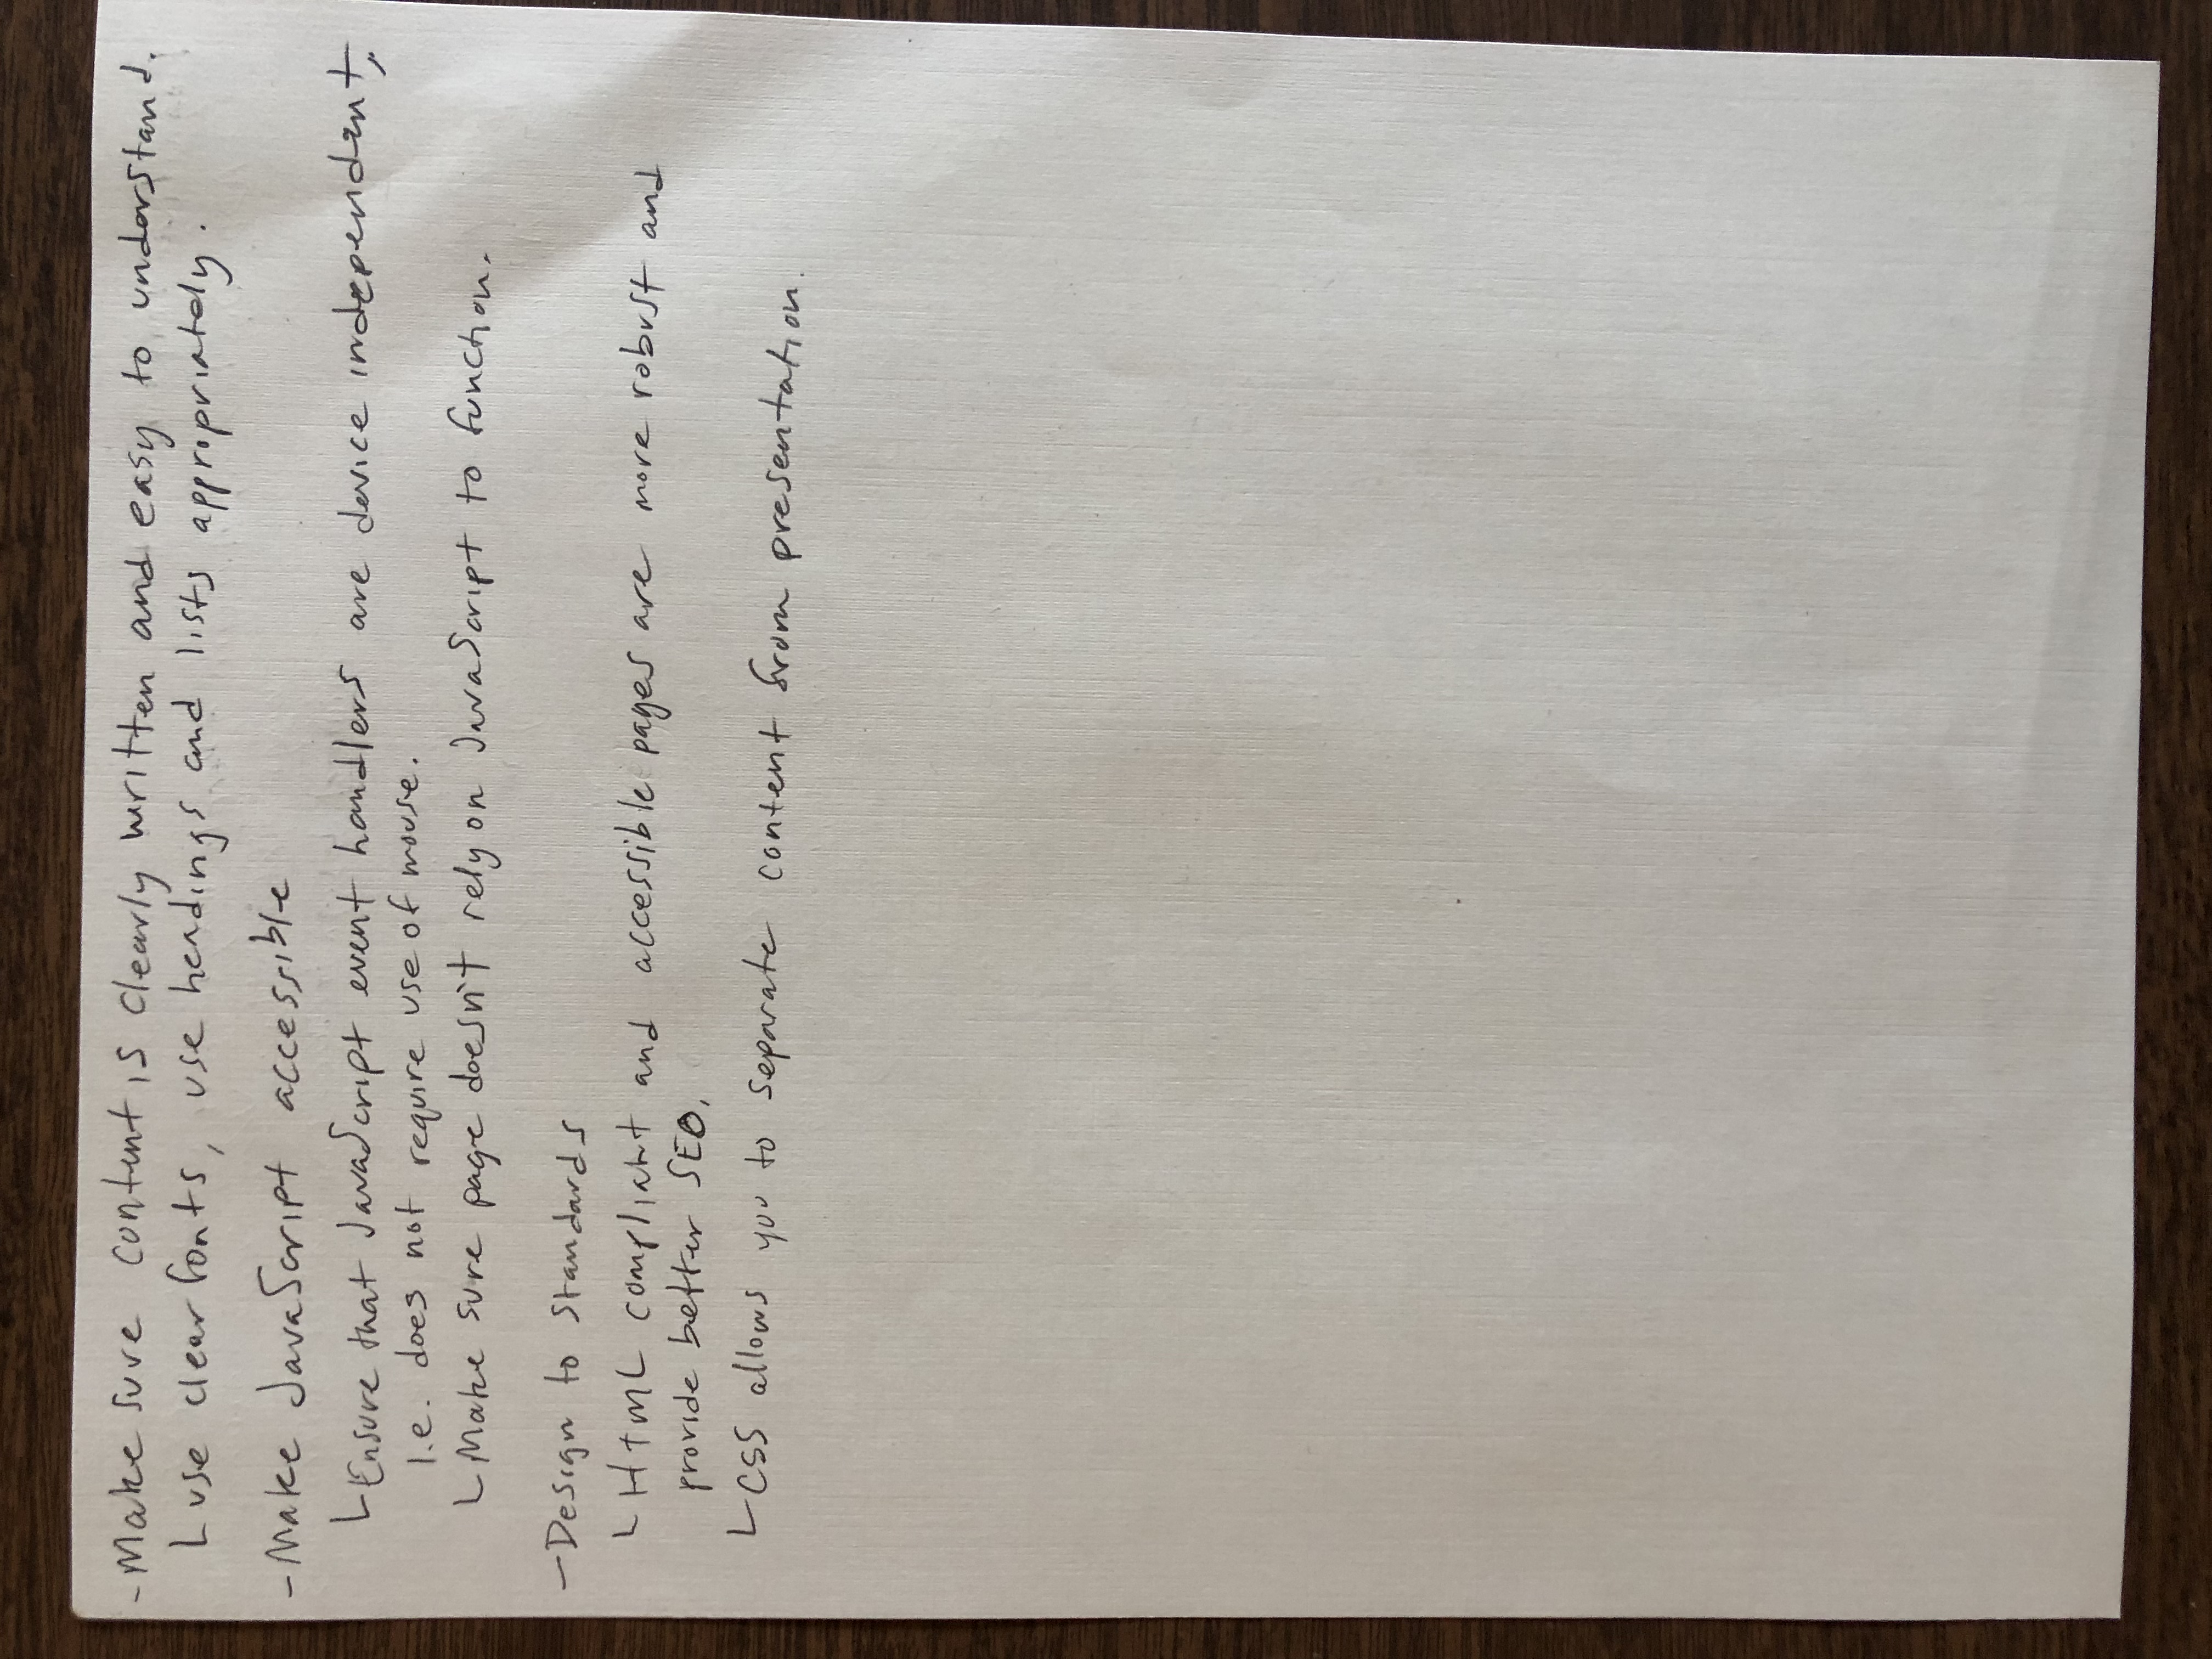 - Make sure content is clearly written and easy to understand.
└ use clear fonts, use headings and lists appropriately.
- Make JavaScript accessible
└ Ensure that JavaScript event handlers are device independent,
I.e. does not require use of mouse.
└ Make sure page doesn't rely on JavaScript to function.
- Design to standards
└ HTML compliant and accessible pages are more robust and
provide better SEO.
└ CSS allows you to separate content from presentation.